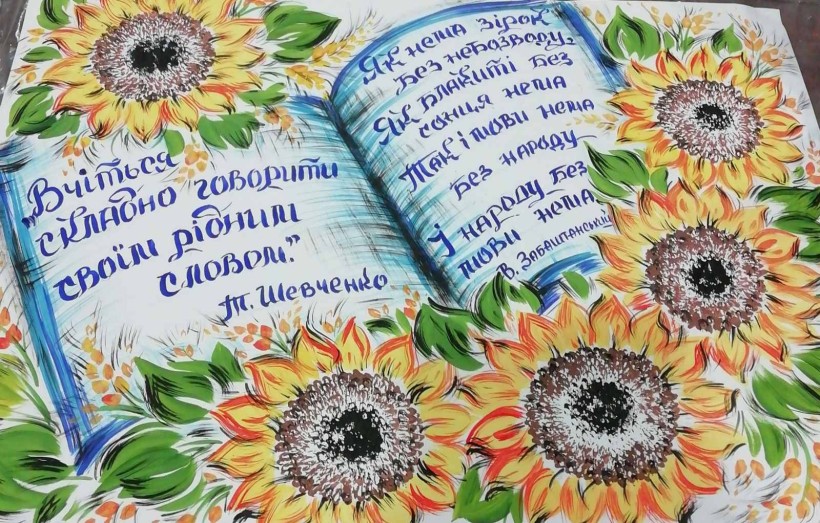 „Вчіться
складно говорити
своїм рідним
словом."
Т. Шевченко
Як нема зірок
без небозводу,
Як блакиті без
сонця нема
Так і мови нема
без народу
І народу без
мови нема.
В. Забаштанський